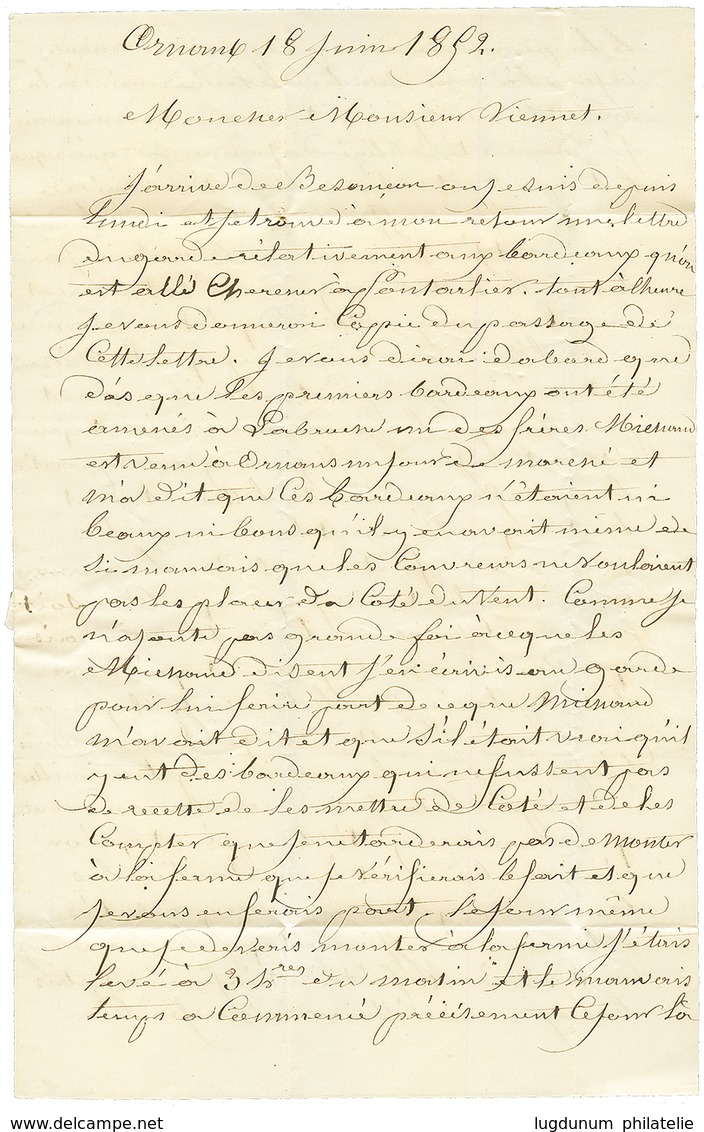 Ornans 18 Juin 1852.
Mon cher Monsieur Viennet.
J'arrive de Besançon ou je suis depuis
lundi et je trouve à mon retour une lettre
du garde rélativement aux bardeaux qu'on
est allé chercher à Pontarlier. tout à l'heure
je vous donnerai Coppie du passage de
Cette lettre. je vous dirai d'abord que
dès que les premiers bardeaux ont été
amenés à un des frères Michaud
est venu à Ornans un jour de marché et
m'a dit que ces bardeaux n'étaient ni
beaux ni bons qu'il y en avait même de
si mauvais que les Couvreurs ne voulaient
pas les placer du Coté du Vent. Comme je
n'ajoute pas grande foi à ce que les
Michaud disent j'en écrivis au garde
pour lui faire part de ce que Michaud
m'avait dit et que s'il était vrai qu'il
y eut des bardeaux qui ne fussent pas
de recette de les mettre de Coté et de les
Compter que je ne tarderais pas de monter
à la ferme que je vérifierais le fait et que
je vous en ferais part. le jour même
que je devais monter à la ferme j'étais
levé à 3 hres du matin et le mauvais
temps a Commencé précisément ce jour là
www.delcampe.net
lugdunum philatelie